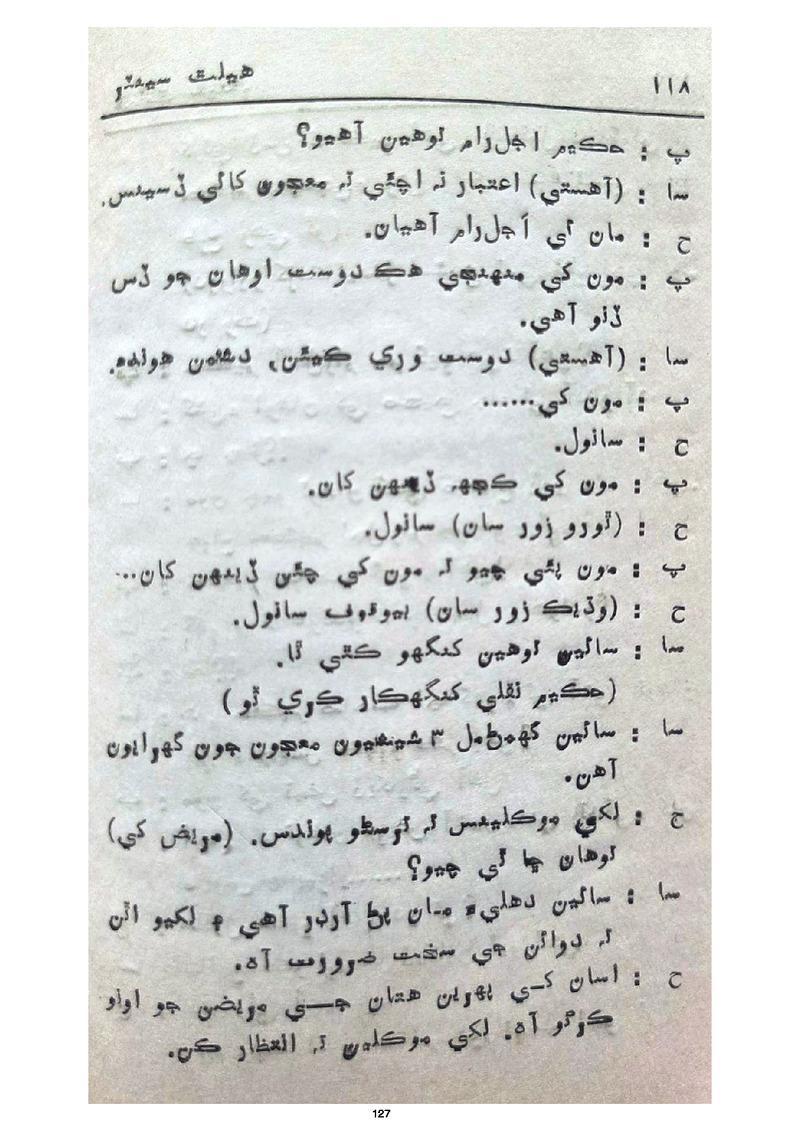 ١١٨ هيلٿ سينٽر
پ : حڪيم اجل رام توهين آهيو؟
سا : (آهستي) اعتبار نہ اچئي تہ معجون کائي ڏسينس.
ح : مان ئي اَجل رام آهيان.
پ : مون کي منهنجي هڪ دوست اوهان جو ڏس
ڏنو آهي.
سا : (آهستي) دوست وري ڪيئن، دشمن هوندء.
پ : مون کي......
ح : سانول.
پ : مون کي ڪجهہ ڏينهن کان.
ح : (ٿورو زور سان) سانول.
پ : مون پئي چيو تہ مون کي چئن ڏينهن کان...
ح : (وڌيڪ زور سان) بيوقوف سانول.
سا : سائين توهين کنگهو ڪٿي ٿا.
(حڪيم نقلي کنگهڪار ڪري ٿو)
سا : سائين گهمڻمل ٣ شيشيون معجون جون گهرايون
آهن.
ح : لکي موڪلينس تہ ترسڻو پوندس. (مريض کي)
توهان ڇا ٿي چيو؟
سا : سائين دهليء مان پڻ آرڊر آهي ۽ لکيو اٿن
تہ دوائن جي سخت ضرورت آه.
ح : اسان کي پهرين هتان جي مريضن جو اونو
ڪرڻو آه. لکي موڪلين تہ انتظار ڪن.
127